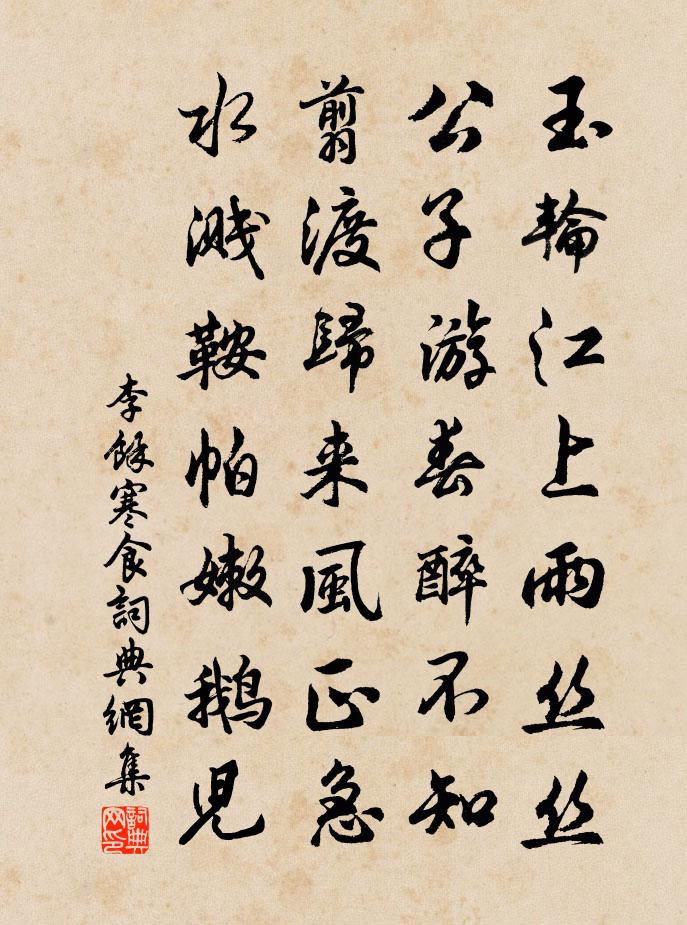 玉輪江上雨丝丝
公子游春醉不知
翦渡歸来風正急
水濺鞍帕嫩鵝兒
李餘寒食詞典網集
詞典网印